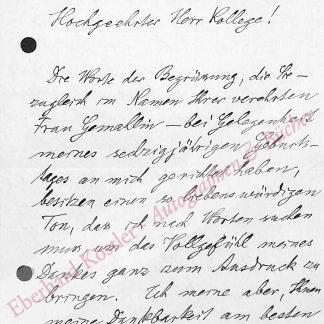 Hochgeehrter Herr Kollege!
Die Worte der Begrüssung, die Sie –
zugleich im Namen Ihrer verehrten
Frau Gemahlin – bei Gelegenheit
meines sechzigjährigen Geburts-
tages an mich gerichtet haben,
besitzen einen so liebenswürdigen
Ton, dass ich nach Worten suchen
muss, um das Vollgefühl meines
Dankes ganz zum Ausdruck zu
bringen. Ich meine aber, Ihnen
meine Dankbarkeit am besten
Eberhard Köstler - Autographen & Bücher